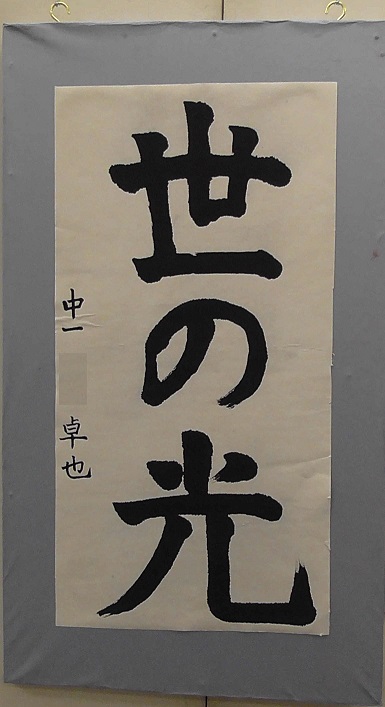 世の光
中一 卓也